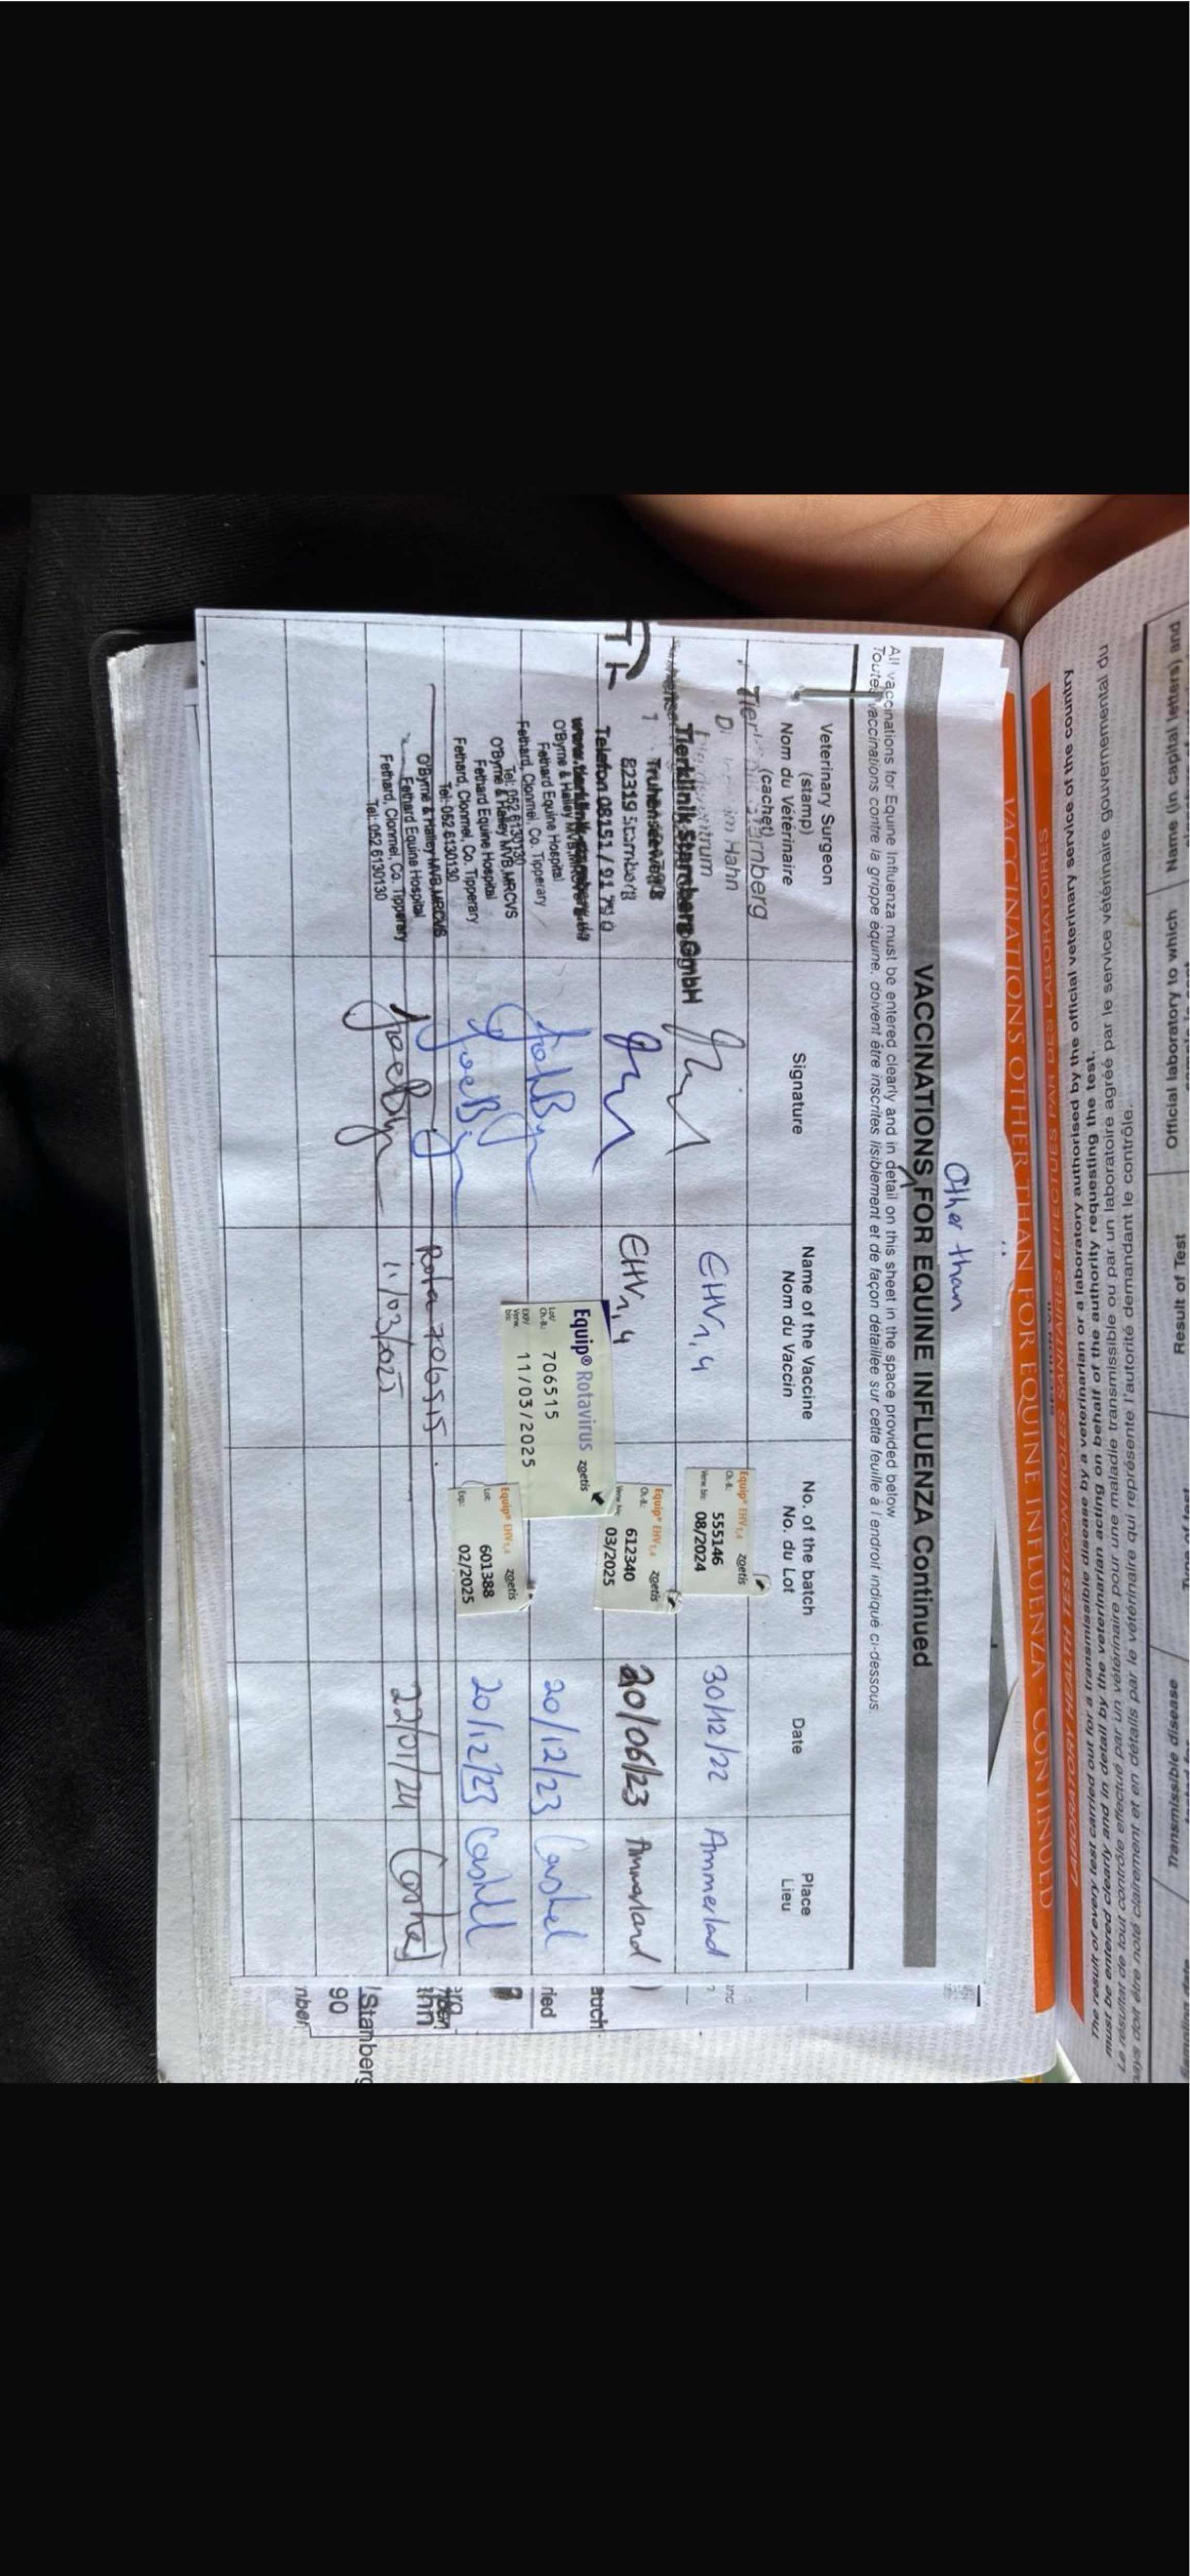 Other than
VACCINATIONS FOR EQUINE INFLUENZA Continued
All vaccinations for Equine Influenza must be entered clearly and in detail on this sheet in the space provided below
Toutes vaccinations contre la grippe équine, doivent être inscrites lisiblement et de façon détaillée sur cette feuille à l'endroit indiqué ci-dessous
Veterinary Surgeon
(stamp)
Nom du Vétérinaire
(cachet)
Signature
Name of the Vaccine
Nom du Vaccin
No. of the batch
No. du Lot
Date
Place
Lieu
Hahn
Tierklinik Starnberg GmbH
82319 Starnberg
Telefon 08151 /
EHV1,4
Equip® EHV1,4 zoetis
Ch.-B.: 555146
Verw. bis: 08/2024
30/12/22
Ammerlad
EHV1,4
Equip® EHV1,4 zoetis
Ch.-B.: 612340
Verw. bis: 03/2025
20/06/23
Ammerland
O'Byrne & Halley MVB, MRCVS
Fethard Equine Hospital
Fethard, Clonmel, Co. Tipperary
Tel: 052 6130130
Equip® Rotavirus zoetis
Lot/
Ch.-B.: 706515
EXP/
Verw.
bis: 11/03/2025
20/12/23
Cashel
O'Byrne & Halley MVB, MRCVS
Fethard Equine Hospital
Fethard, Clonmel, Co. Tipperary
Tel: 052 6130130
Equip® EHV1,4 zoetis
Lot: 601388
Exp.: 02/2025
20/12/23
Cashel
O'Byrne & Halley MVB, MRCVS
Fethard Equine Hospital
Fethard, Clonmel, Co. Tipperary
Tel: 052 6130130
Rota 706515
11/03/2025
22/01/24
Cashel
VACCINATIONS OTHER THAN FOR EQUINE INFLUENZA - CONTINUED
The result of every test carried out for a transmissible disease by a veterinarian or a laboratory authorised by the official veterinary service of the country
must be entered clearly and in detail by the veterinarian acting on behalf of the authority requesting the test.
Le résultat de tout contrôle effectué par un vétérinaire pour une maladie transmissible ou par un laboratoire agréé par le service vétérinaire gouvernemental du
pays doit être noté clairement et en détails par le vétérinaire qui représente l'autorité demandant le contrôle.
Transmissible disease
Type of test
Result of Test
Official laboratory to which
Name (in capital letters) and
auch
ried
Stanberg
90